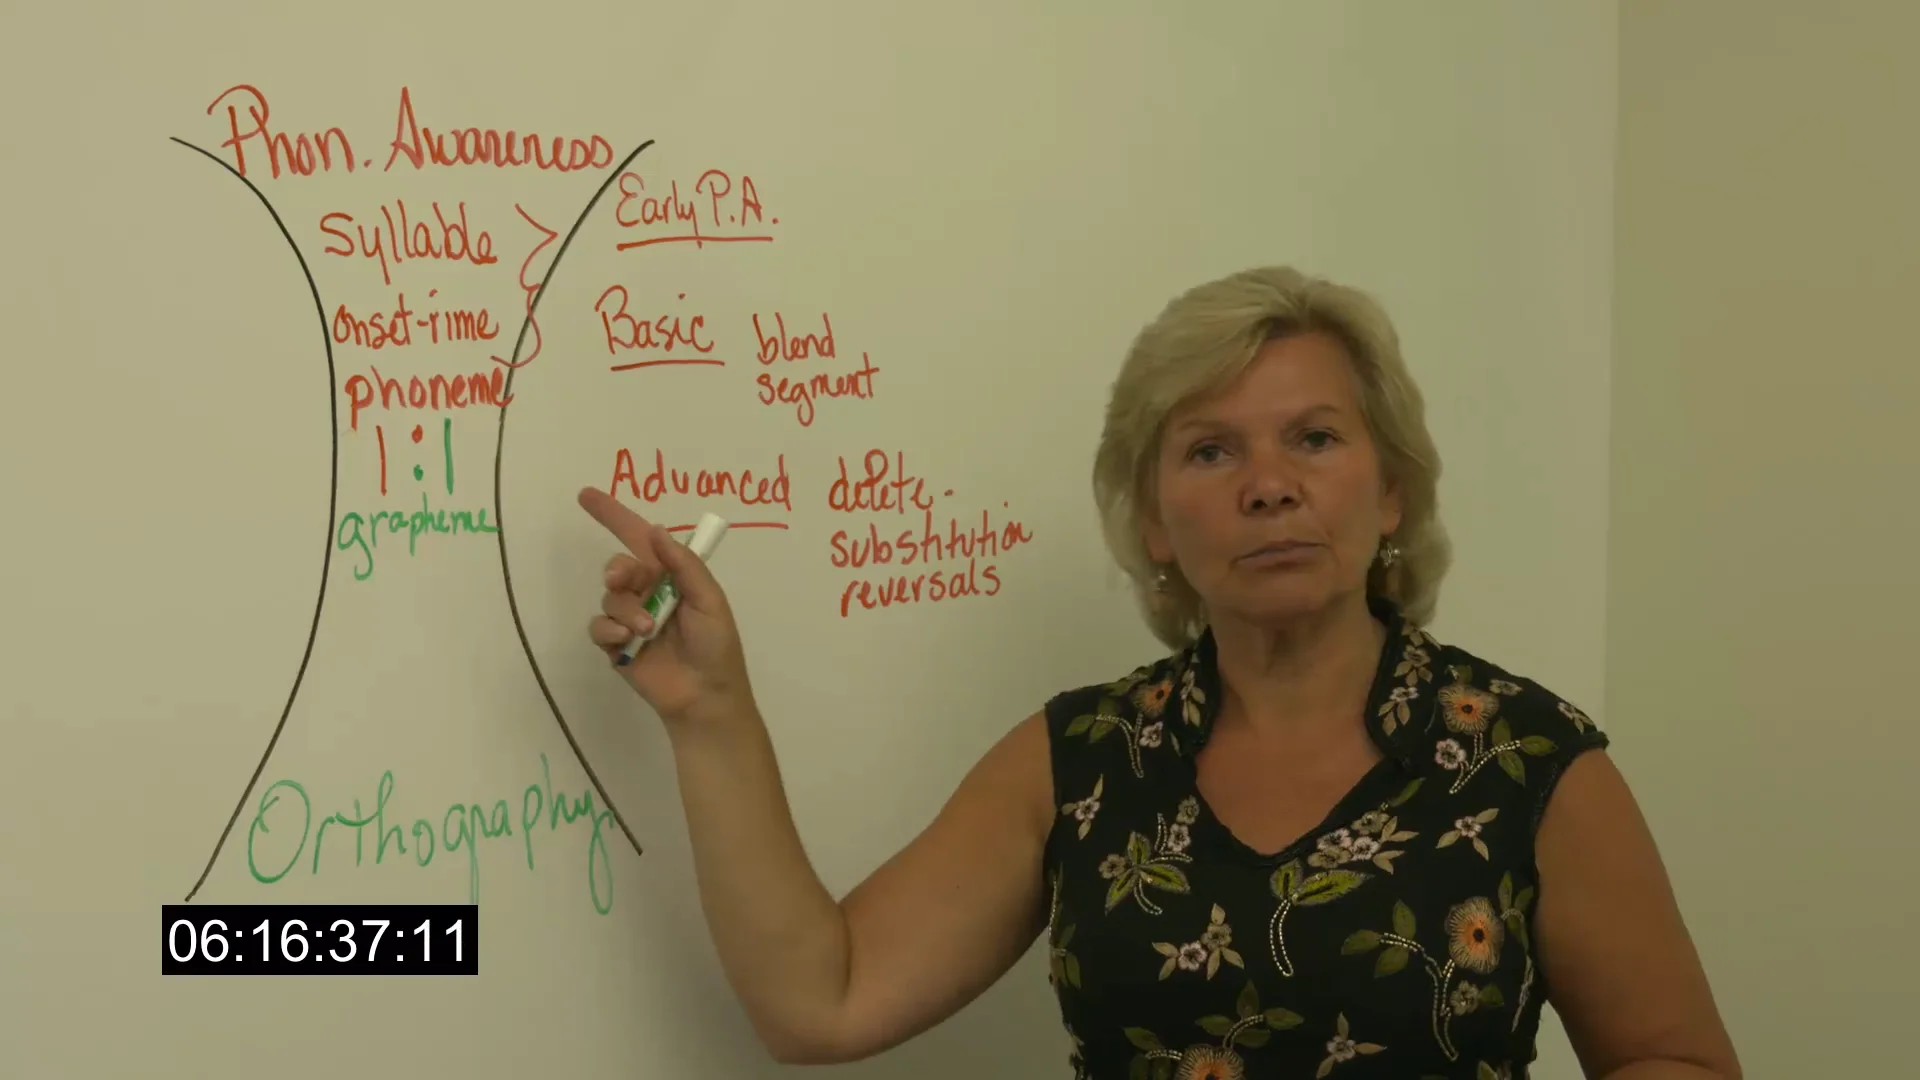 Phon. Awareness
syllable
onset-rime
phoneme
1:1
grapheme
Orthography
Early P.A.
Basic blend
segment
Advanced delete-
substitution
reversals
06:16:37:11